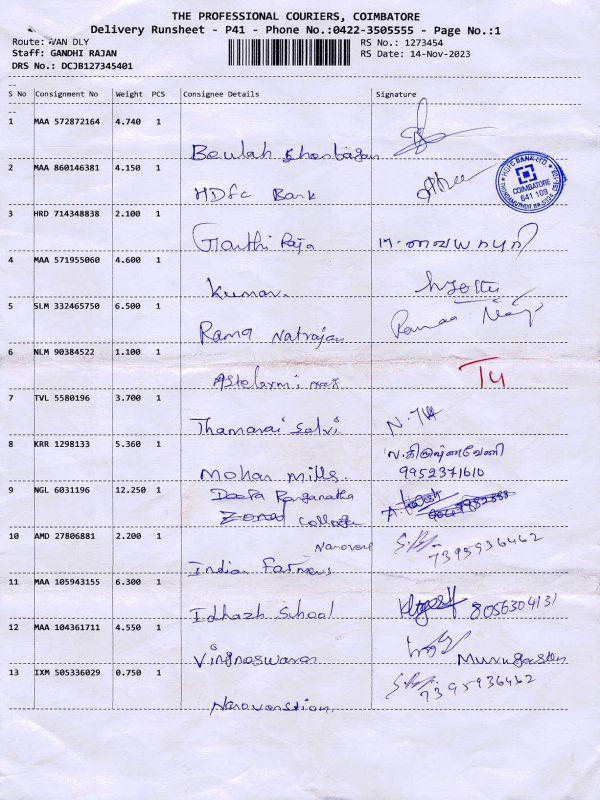 THE PROFESSIONAL COURIERS, COIMBATORE
Delivery Runsheet - P41 - Phone No.:0422-3505555 - Page No.:1
Route: VAN DLY
Staff: GANDHI RAJAN
DRS No.: DCJB127345401
RS No.: 1273454
RS Date: 14-Nov-2023
S No Consignment No Weight PCS Consignee Details Signature
1 MAA 572872164 4.740 1
Beulah
2 MAA 860146381 4.150 1
HDFC Bank
HDFC BANK LTD.
COIMBATORE
641 109
3 HRD 714348838 2.100 1
Ganthi Raja
4 MAA 571955060 4.600 1
Kumar.
5 SLM 332465750 6.500 1
Rama Natrajan
6 NLM 90384522 1.100 1
7 TVL 5580196 3.700 1
Thamarai Selvi
8 KRR 1298133 5.360 1
ந.கிருஷ்ணவேணி
9952371610
Mohan Mills.
9 NGL 6031196 12.250 1
Deepa Ranganatha
College
10 AMD 27806881 2.200 1
7395936462
Indian Farmers
11 MAA 105943155 6.300 1
Idhazh School
8056304131
12 MAA 104361711 4.550 1
Murugesan
13 IXM 505336029 0.750 1
7395936462